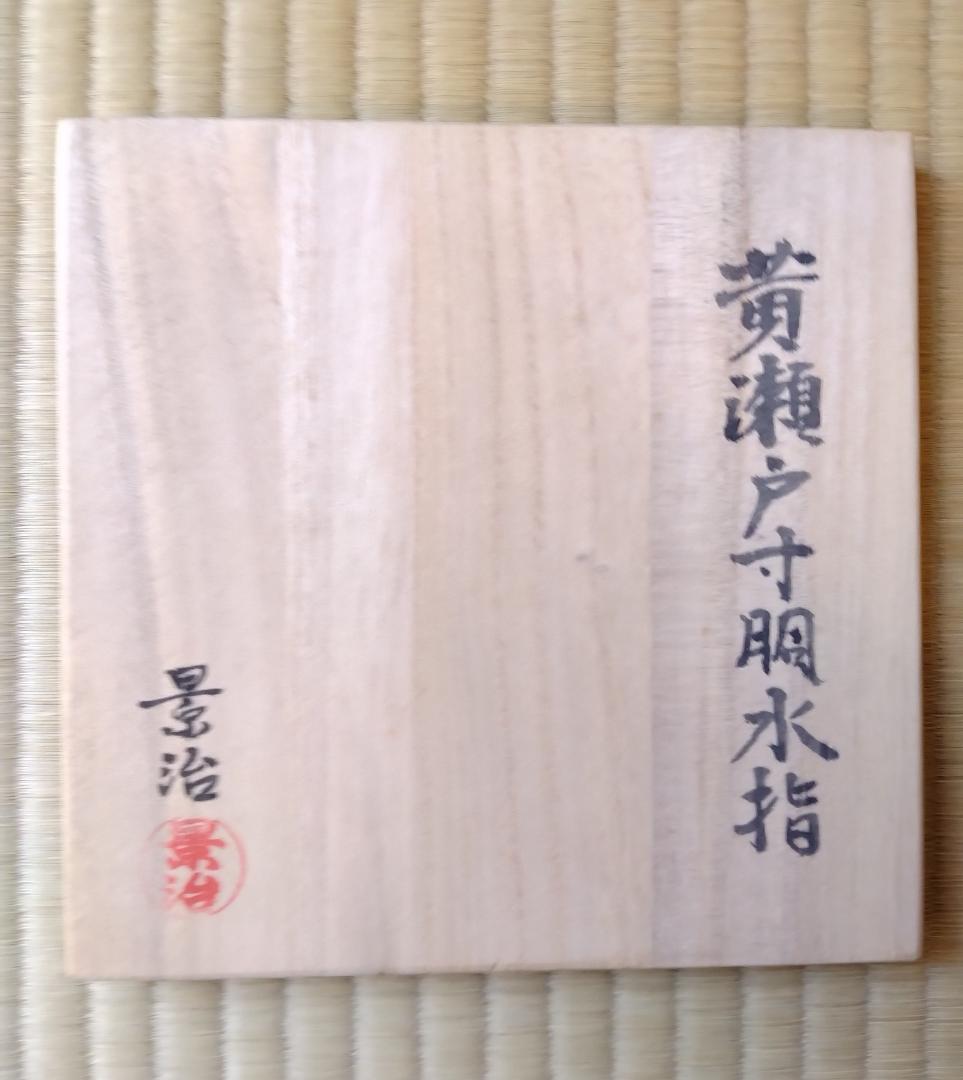 黄瀬戸寸胴水指
景治
景治